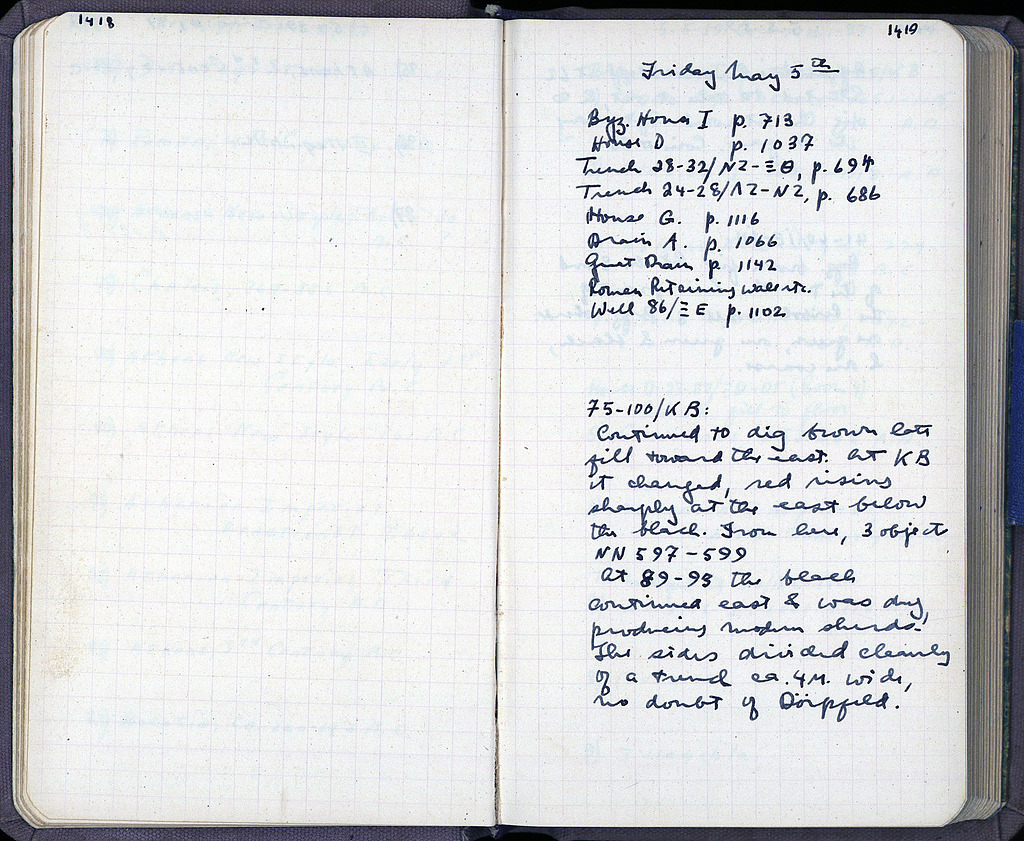 1418
1419
Friday May 5th
Byz. House I p. 713
House D p. 1037
Trench 28-32/ΝΖ-ΞΘ, p. 694
Trench 24-28/ΛΖ-ΝΖ, p. 686
House G. p. 1116
Drain A. p. 1066
Great Drain p. 1142
Roman Retaining wall etc.
Well 86/ΞΕ p. 1102
75-100/ΚΒ:
Continued to dig brown late
fill toward the east. At ΚΒ
it changed, red rising
sharply at the east below
the black. From here, 3 objects
NN 597-599
At 89-93 the black
continued east & was dug,
producing modern sherds.
The sides divided cleanly
of a trench ca. 4M. wide,
no doubt of Dörpfeld.